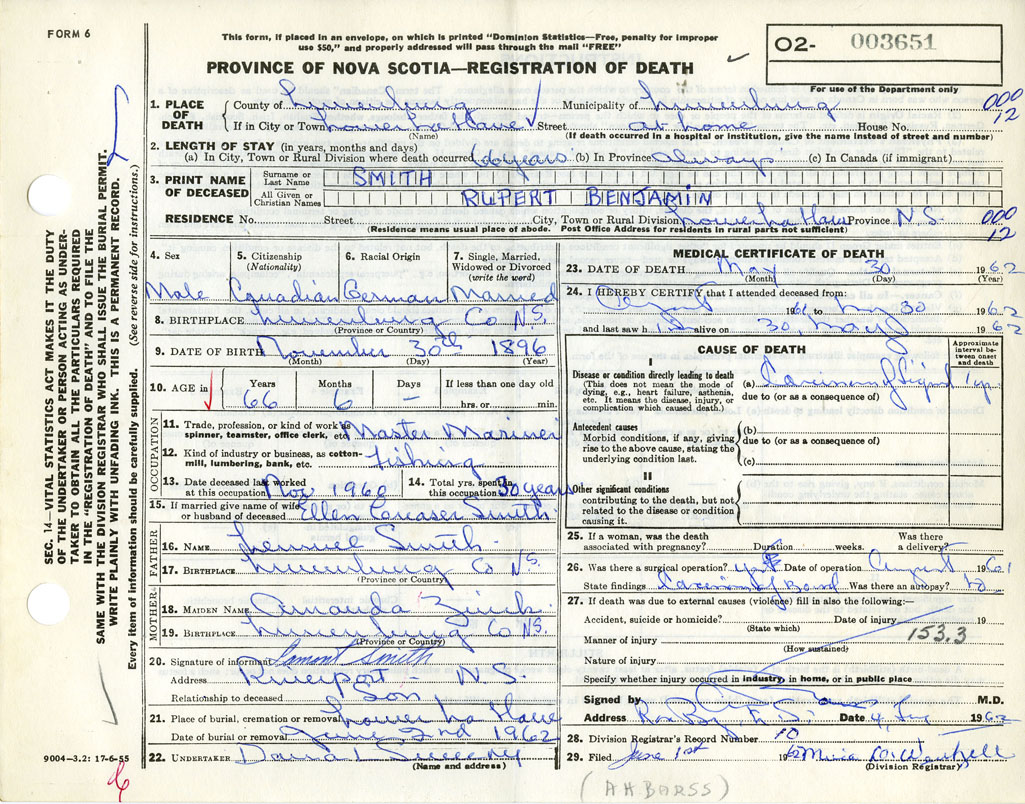 FORM 6
This form, if placed in an envelope, on which is printed "Dominion Statistics—Free, penalty for improper
use $50," and properly addressed will pass through the mail "FREE"
O2- 003651
PROVINCE OF NOVA SCOTIA—REGISTRATION OF DEATH
For use of the Department only
1. PLACE OF DEATH { County of Lunenburg Municipality of Lunenburg 000 12
If in City or Town Lower La Have Street at home House No.
(Name) (If death occurred in a hospital or institution, give the name instead of street and number)
2. LENGTH OF STAY (in years, months and days)
(a) In City, Town or Rural Division where death occurred 66 years (b) In Province always (c) In Canada (if immigrant)
3. PRINT NAME OF DECEASED { Surname or Last Name SMITH
All Given or Christian Names RUPERT BENJAMIN
RESIDENCE No. Street City, Town or Rural Division Lower La Have Province N.S. 000 12
(Residence means usual place of abode. Post Office Address for residents in rural parts not sufficient)
4. Sex 5. Citizenship (Nationality) 6. Racial Origin 7. Single, Married, Widowed or Divorced (write the word)
Male Canadian German Married
8. BIRTHPLACE Lunenburg Co N.S.
(Province or Country)
9. DATE OF BIRTH November 30th 1896
(Month) (Day) (Year)
10. AGE in { Years Months Days If less than one day old
66 6 — hrs. or min.
OCCUPATION
11. Trade, profession, or kind of work as spinner, teamster, office clerk, etc. Master Mariner
12. Kind of industry or business, as cotton-mill, lumbering, bank, etc. fishing
13. Date deceased last worked at this occupation Nov 1960 14. Total yrs. spent in this occupation 30 years
15. If married give name of wife or husband of deceased Ellen Creaser Smith
FATHER
16. NAME Lemuel Smith
17. BIRTHPLACE Lunenburg Co N.S.
(Province or Country)
MOTHER
18. MAIDEN NAME Amanda Zinck
19. BIRTHPLACE Lunenburg Co N.S.
(Province or Country)
20. Signature of informant Lamont Smith
Address Riverport - N.S.
Relationship to deceased Son
21. Place of burial, cremation or removal Lower La Have
Date of burial or removal June 2nd 1962
22. UNDERTAKER David L Sweeney
(Name and address)
MEDICAL CERTIFICATE OF DEATH
23. DATE OF DEATH May 30 1962
(Month) (Day) (Year)
24. I HEREBY CERTIFY that I attended deceased from:
1961 to May 30 1962
and last saw him alive on 30, May 1962
CAUSE OF DEATH
Approximate interval between onset and death
I
Disease or condition directly leading to death
(This does not mean the mode of dying, e.g., heart failure, asthenia, etc. It means the disease, injury, or complication which caused death.)
(a) Carcinoma of Sigmoid 1 yr
due to (or as a consequence of)
Antecedent causes
Morbid conditions, if any, giving rise to the above cause, stating the underlying condition last.
(b)
due to (or as a consequence of)
(c)
II
Other significant conditions
contributing to the death, but not related to the disease or condition causing it.
25. If a woman, was the death associated with pregnancy? Duration weeks. Was there a delivery?
26. Was there a surgical operation? yes Date of operation August 1961
State findings Carcinoma of Bowel Was there an autopsy? no
27. If death was due to external causes (violence) fill in also the following:—
Accident, suicide or homicide? Date of injury 19
(State which)
Manner of injury 153.3
(How sustained)
Nature of injury
Specify whether injury occurred in industry, in home, or in public place
Signed by M.D.
Address Rose Bay, N.S. Date 1962
28. Division Registrar's Record Number 10
29. Filed June 1st 1962
(Division Registrar)
(A H BARSS)
SEC. 14—VITAL STATISTICS ACT MAKES IT THE DUTY
OF THE UNDERTAKER OR PERSON ACTING AS UNDER-
TAKER TO OBTAIN ALL THE PARTICULARS REQUIRED
IN THE "REGISTRATION OF DEATH" AND TO FILE THE
SAME WITH THE DIVISION REGISTRAR WHO SHALL ISSUE THE BURIAL PERMIT.
WRITE PLAINLY WITH UNFADING INK. THIS IS A PERMANENT RECORD.
Every item of information should be carefully supplied. (See reverse side for instructions.)
9004-3.2: 17-6-55